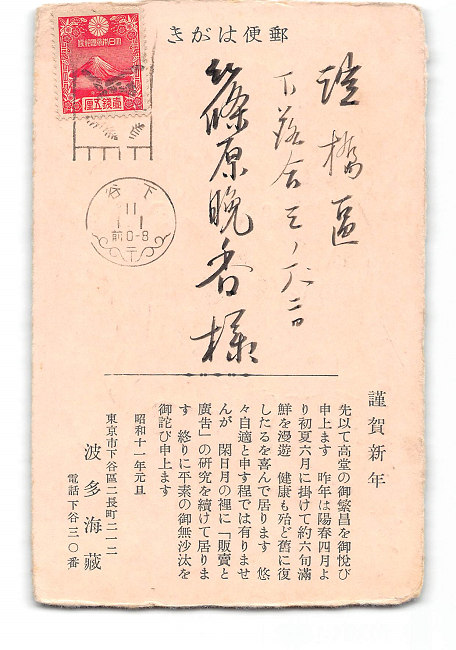 郵便はがき
大日本帝国郵便
壹錢五厘
下谷
11
1 1
前0-8
淀橋區
下落合三ノ
篠原晩香様
謹賀新年
先以て高堂の御繁昌を御悅び
申上ます 昨年は陽春四月よ
り初夏六月に掛けて約六旬滿
鮮を漫遊 健康も殆ど舊に復
したるを喜んで居ります 悠
々自適と申す程では有りませ
んが 閑日月の裡に「販賣と
廣告」の硏究を續けて居りま
す 終りに平素の御無沙汰を
御詫び申上ます
昭和十一年元旦
東京市下谷區二長町二一二
波多海藏
電話下谷三〇番